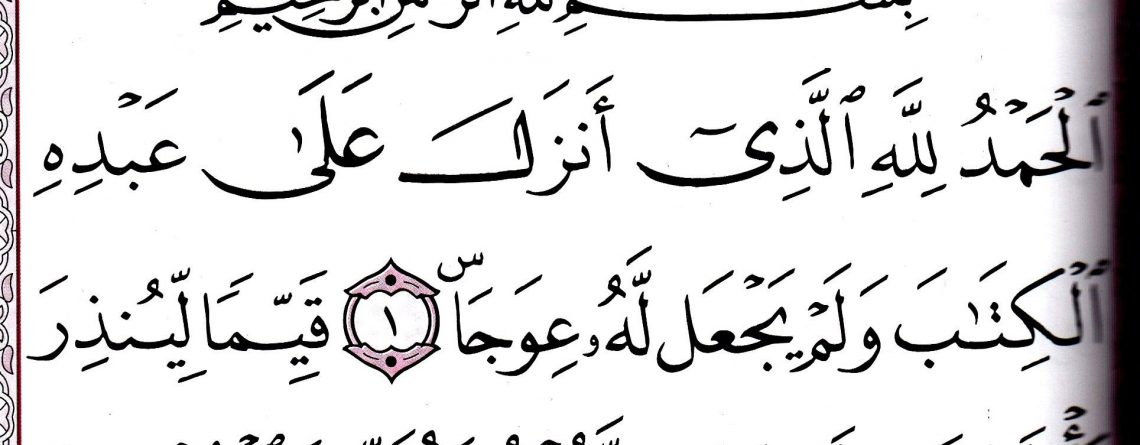 بِسْمِ ٱللَّهِ ٱلرَّحْمَٰنِ ٱلرَّحِيمِ
ٱلْحَمْدُ لِلَّهِ ٱلَّذِىٓ أَنزَلَ عَلَىٰ عَبْدِهِ
ٱلْكِتَـٰبَ وَلَمْ يَجْعَل لَّهُۥ عِوَجَاۜ ١ قَيِّمًا لِّيُنذِرَ